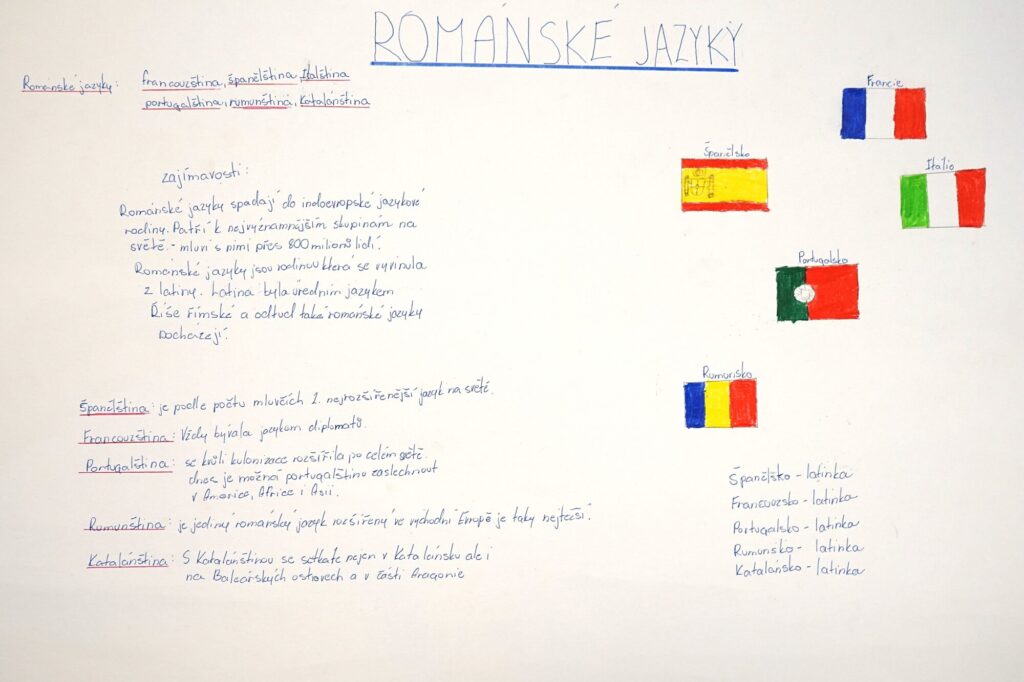 ROMÁNSKÉ JAZYKY
Románské jazyky: francouzština, španělština, Italština
portugalština, rumunština, Kataláńština
Francie
Španělsko
Itálie
Portugalsko
Rumunsko
zajímavosti:
Románské jazyky spadají do indoevropské jazykové
rodiny. Patří k nejvýznamnějším skupinám na
světě - mluví s nimi přes 800 milionů lidí.
Románské jazyky jsou rodinou která se vyvinula
z latiny. Latina byla úředním jazykem
Říše římské a odtud také románské jazyky
Docházejí.
Španělština: je podle počtu mluvčích 2. nejrozšířenější jazyk na světě.
Francouzština: Vždy bývala jazykem diplomatů.
Portugalština: se kvůli kolonizace rozšířila po celém světě.
dnes je možná portugalštino zaslechnout
v Americe, Africe i Asii.
Rumunština: je jediný románský jazyk rozšířený ve východní Evropě je taky nejtežší.
Kataláńština: S Kataláńštinou se setkáte nejen v Kataláńsku ale i
na Baleárských ostrovech a v části Aragonie
Španělsko - latinka
Francouzsko - latinka
Portugalsko - latinka
Rumunsko - latinka
Kataláńsko - latinka